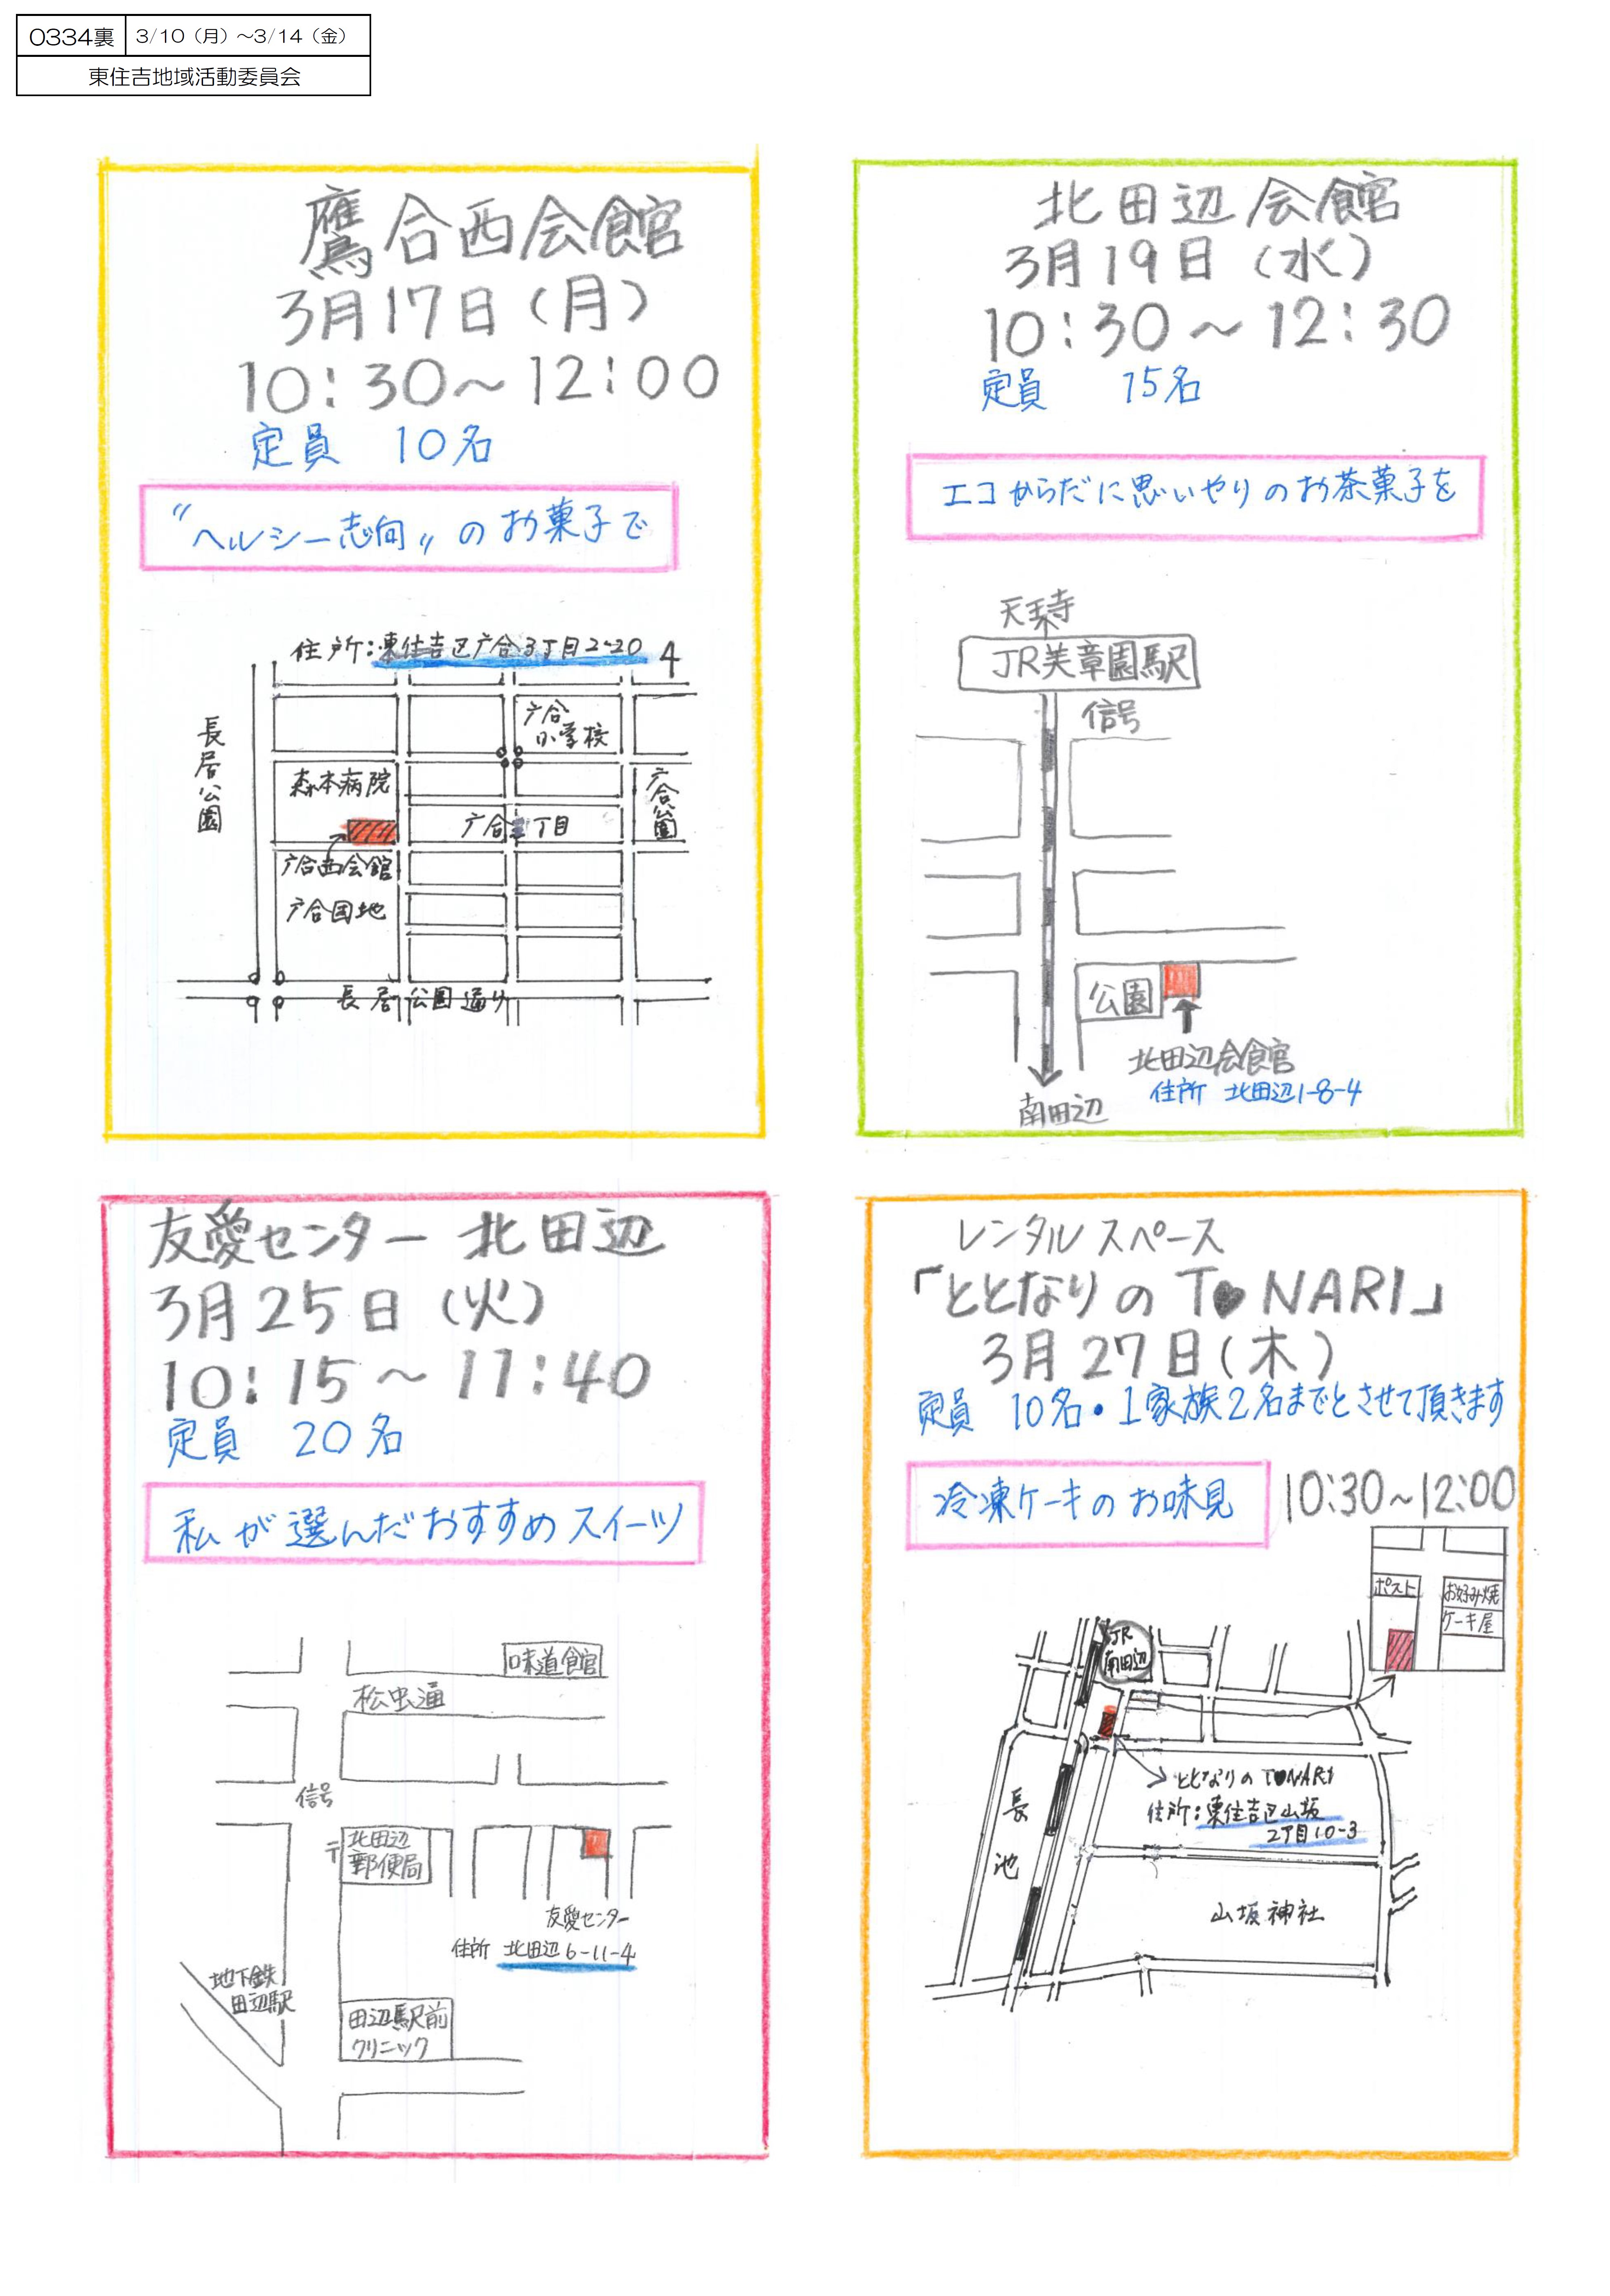 0334裏
3/10（月）～3/14（金）
東住吉地域活動委員会
鷹合西会館
3月17日(月)
10:30～12:00
定員 10名
〝ヘルシー志向〟のお菓子で
住所:東住吉区广合3丁目2-20
4
長居公園
广合
小学校
森本病院
广合公園
丁目
广合西会館
广合団地
長居公園通り
北田辺会館
3月19日(水)
10:30～12:30
定員 15名
エコからだに思いやりのお茶菓子を
天王寺
JR美章園駅
信号
公園
北田辺会館
住所 北田辺1-8-4
南田辺
友愛センター 北田辺
3月25日(火)
10:15～11:40
定員 20名
私が選んだおすすめスイーツ
味道館
松虫通
信号
〒
北田辺
郵便局
友愛センター
住所 北田辺6-11-4
地下鉄
田辺駅
田辺駅前
クリニック
レンタルスペース
「ととなりのT♥NARI」
3月27日(木)
定員 10名・1家族2名までとさせて頂きます
冷凍ケーキのお味見
10:30～12:00
ポスト
お好み焼
ケーキ屋
JR
南田辺
ととなりのT♥NARI
住所:東住吉区山坂
2丁目10-3
長池
山坂神社